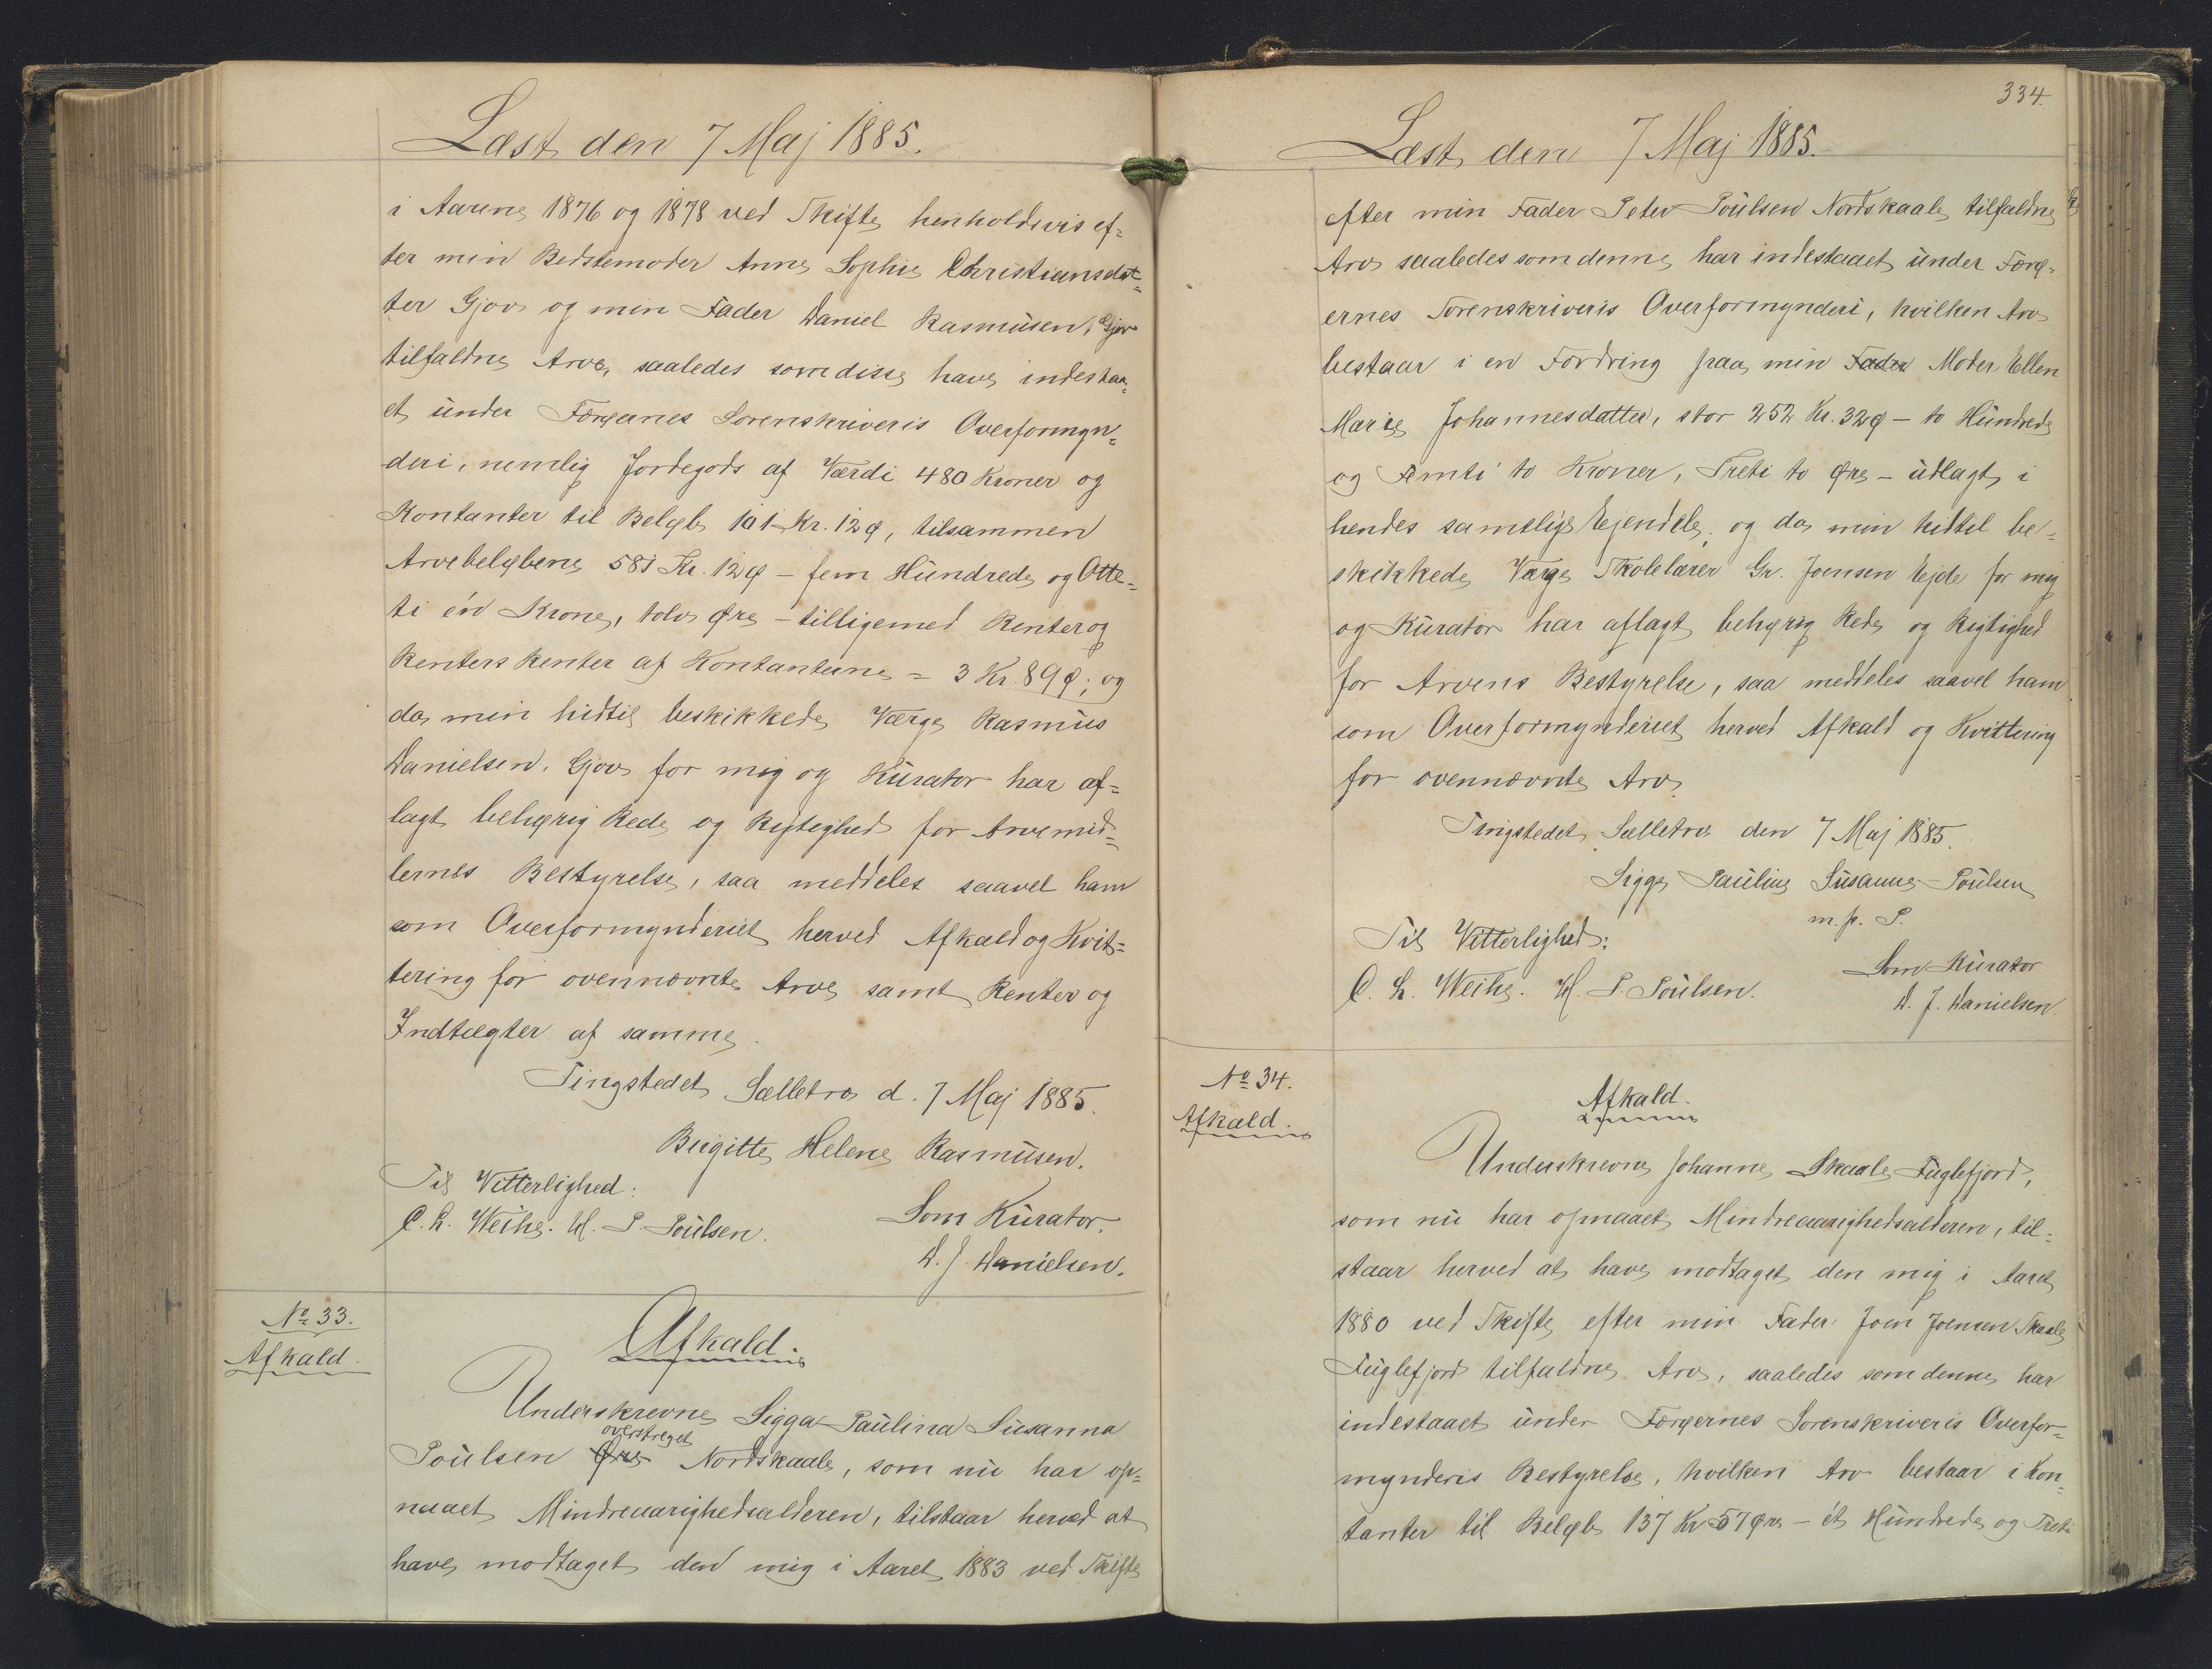 Læst den 7 Maj 1885.
i Aarene 1876 og 1878 ved Skifte henholdsvis ef=
ter min Bedstemoder Anne Sophie Christiansdat=
ter Gjov og min Fader Daniel Rasmusen, Gjov
tilfaldne Arve, saaledes som disse have indestaa=
et under Færøernes Sorenskriveris Overformyn=
deri, nemlig Jordegods af Værdi 480 Kroner og
Kontanter til Beløb 101 Kr. 12 Ø, tilsammen
Arvebeløbene 581 Kr. 12 Ø – fem Hundrede og Otte=
ti én Krone, tolv Øre – tilligemed Renter og
Renters Renter af Kontanterne = 3 Kr. 89 Ø; og
da min hidtil beskikkede Værge Rasmus
Danielsen. Gjov for mig og Kurator har af=
lagt behørig Rede og Rigtighed for Arvemid=
lernes Bestyrelse, saa meddeles saavel ham
som Overformynderiet herved Afkald og Kvit=
tering for ovennævnte Arve samt Renter og
Indtægter af samme.
Tingstedet Sælletræ d. 7 Maj 1885.
Birgitte Helene Rasmusen.
Til Vitterlighed:
C. L. Weihe. H. P. Poulsen.
Som Kurator.
D. J. Danielsen.
No 33.
Afkald.
Afkald.
Underskrevne Sigga Paulina Susanna
overstreget
Poulsen Øre Nordskaale, som nu har op=
naaet Mindreaarighedsalderen, tilstaar herved at
have modtaget den mig i Aaret 1883 ved Skifte
334.
Læst den 7 Maj 1885.
efter min Fader Peter Poulsen Nordskaale tilfaldne
Arv saaledes som denne har indestaaet under Færø=
ernes Sorenskriveris Overformynderi, hvilken Arv
bestaar i en Fordring paa min Fader Moder Ellen
Marie Johannesdatter, stor 252 Kr. 32 Ø – to Hundrede
og Femti to Kroner, Treti to Øre – udlagt i
hendes samtlige Ejendele; og da min hidtil be=
skikkede Værge Skolelærer Gr. Joensen Ejde for mig
og Kurator har aflagt behørig Rede og Rigtighed
for Arvens Bestyrelse, saa meddeles saavel ham
som Overformynderiet herved Afkald og Kvittering
for ovennævnte Arv.
Tingstedet Sælletræ den 7 Maj 1885.
Sigge Pauline Susanne Poulsen
m. p. P.
Til Vitterlighed:
C. L. Weihe. H. P. Poulsen.
Som Kurator
D. J. Danielsen
No 34.
Afkald.
Afkald.
Underskrevne Johanne Skaale Fuglefjord,
som nu har opnaaet Mindreaarighedsalderen, til=
staar herved at have modtaget den mig i Aaret
1880 ved Skifte efter min Fader Joen Joensen Skaale
Fuglefjord tilfaldne Arv, saaledes som denne har
indestaaet under Færøernes Sorenskriveris Overfor=
mynderis Bestyrelse, hvilken Arv bestaar i Kon=
tanter til Beløb 137 Kr 57 Øre – ét Hundrede og Treti